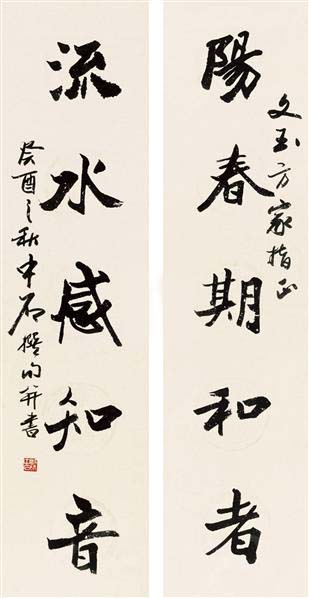 文玉方家指正
陽春期和者
流水感知音
癸酉之秋中石撰句并書